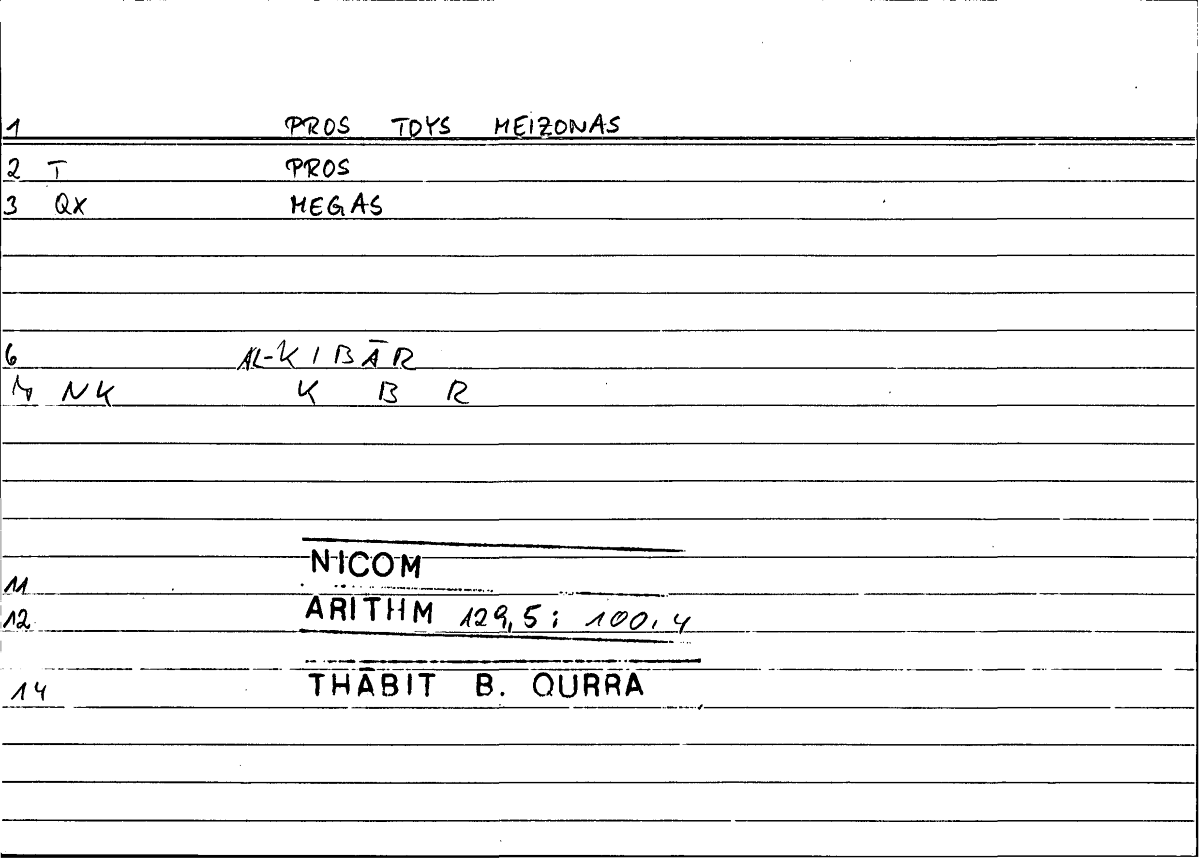 1 PROS TOYS MEIZONAS
2 T PROS
3 QX MEGAS
6 AL-KIBĀR
NK K B R
NICOM
11
ARITHM 129,5; 100,4
12
14 THĀBIT B. QURRA